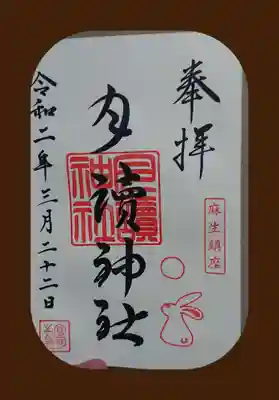 奉拝
麻生鎮座
月讀神社
月讀神社
令和二年三月二十二日